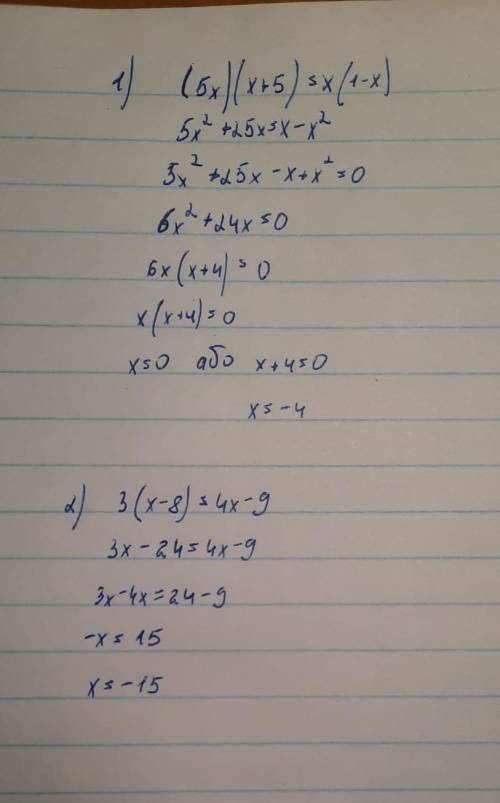 1) (5x)(x+5)=x(1-x)
5x²+25x=x-x²
5x²+25x-x+x²=0
6x²+24x=0
6x(x+4)=0
x(x+4)=0
x=0 або x+4=0
x=-4
2) 3(x-8)=4x-9
3x-24=4x-9
3x-4x=24-9
-x=15
x=-15